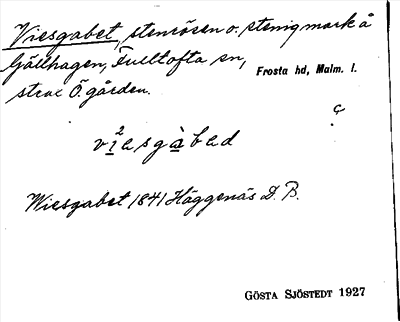 Viesgabet, stenrösen o. stenig mark å
Gällhagen, Fulltofta sn,
Frosta hd, Malm. l.
strax Ö. gården.
Wiesgabet 1841 Häggenäs D. B.
GÖSTA SJÖSTEDT 1927